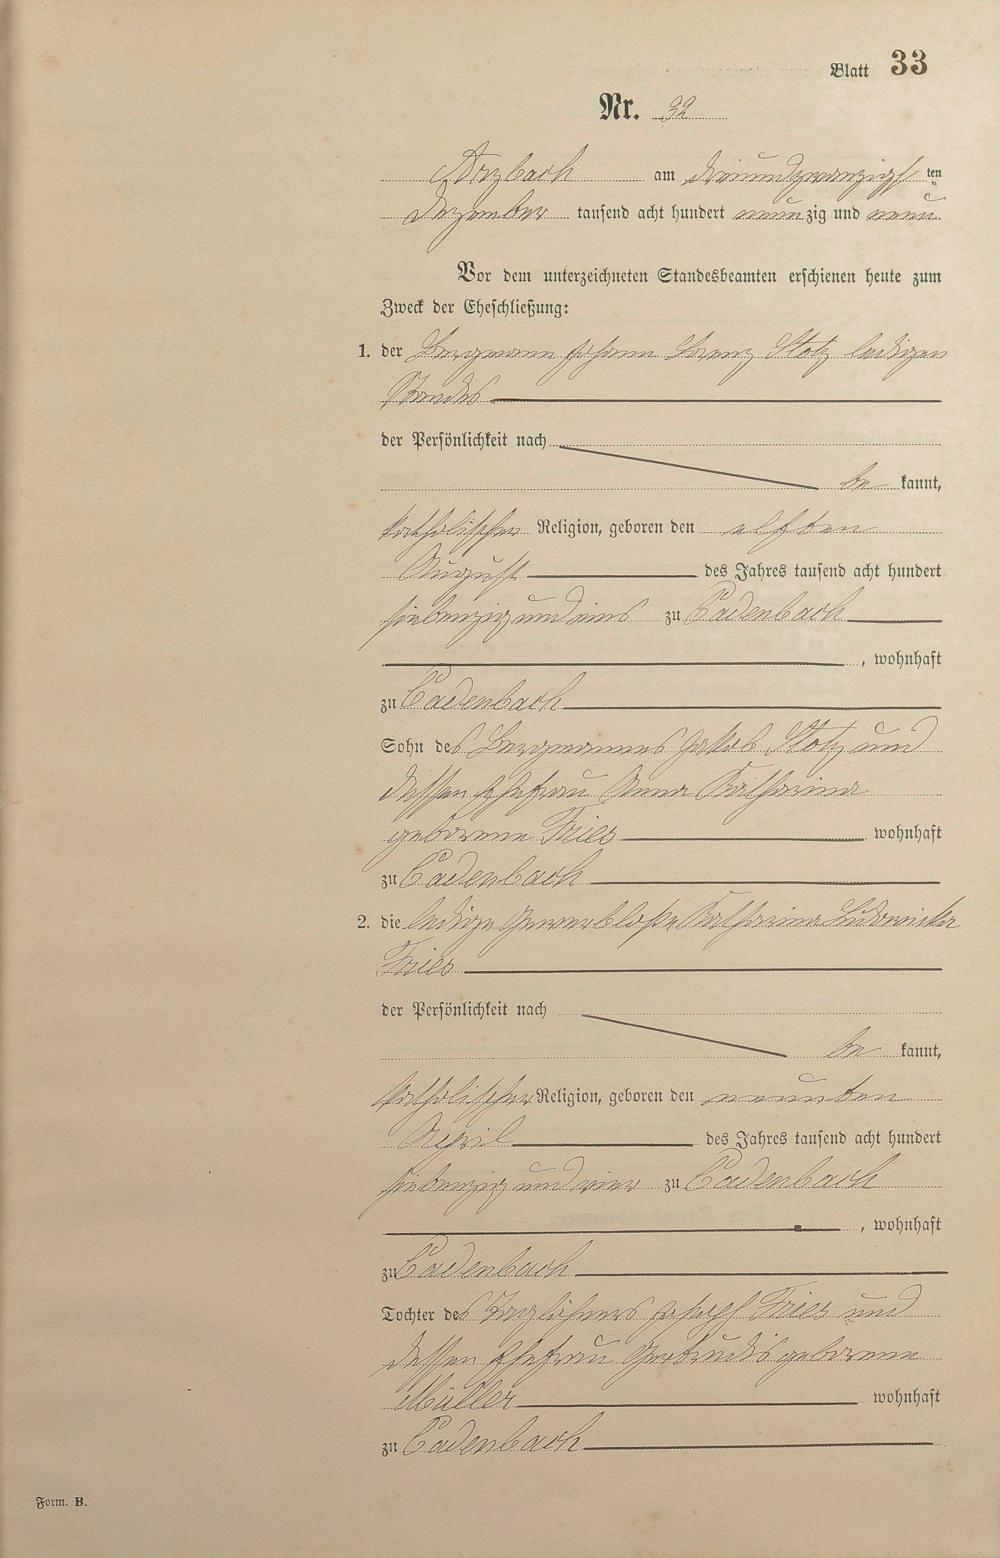 Blatt 33
Nr. 32
Arzbach am dreiundzwanzigst ten
Dezember tausend acht hundert neunzig und neun
Vor dem unterzeichneten Standesbeamten erschienen heute zum
Zweck der Eheschließung:
1. der Bergmann Johann Lorenz Stotz ledigen
Standes
der Persönlichkeit nach
be kannt,
katholischer Religion, geboren den elften
August des Jahres tausend acht hundert
siebenzig und eins zu Cadenbach
, wohnhaft
zu Cadenbach
Sohn des Bergmannes Jakob Stotz und
dessen Ehefrau Anna Katharina
geborene Fries wohnhaft
zu Cadenbach
2. die ledige Gewerblose Katharina Ludowika
Fries
der Persönlichkeit nach
be kannt,
katholischer Religion, geboren den neunten
April des Jahres tausend acht hundert
siebenzig und vier zu Cadenbach
, wohnhaft
zu Cadenbach
Tochter des Taglöhners Joseph Fries und
dessen Ehefrau Gertrudis geborene
Müller wohnhaft
zu Cadenbach
Form. B.